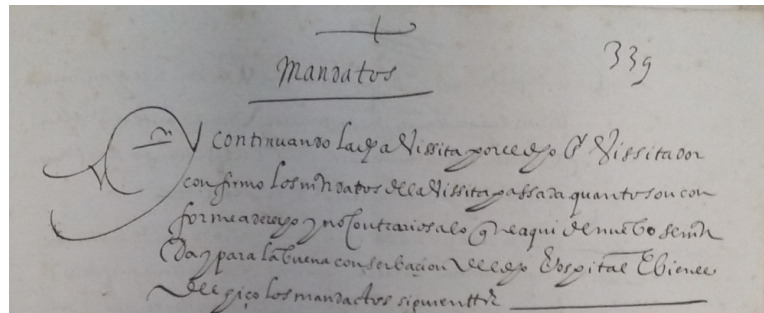 Mandatos
339
Y continuando la dha Vissita por el dho Sr Vissitador
confirmo los mdatos de la Vissita passada quanto son con
forme a derecho y no contrarios a lo que aqui de nuebo se m
da y para la buena conserbaçion del dho Hospital E bienes
del hiço los mandactos siguientes